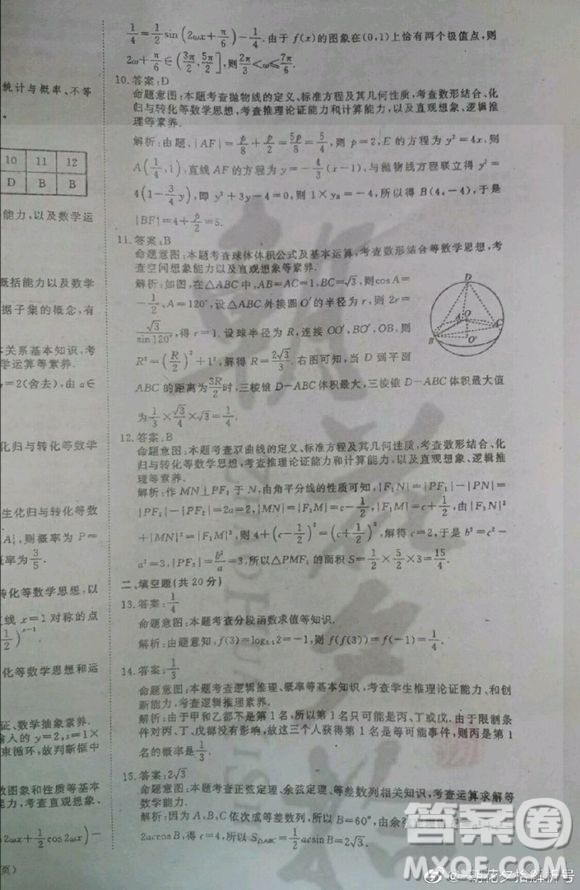 统计与概率、不等
10 11 12
D B B
能力,以及数学运
概括能力以及数学
据子集的概念,有
本关系基本知识,考
学运算等素养.
y=2(舍去),由 a∈
化归与转化等数学
生化归与转化等数
A|,则概率为 P=
率为3/5.
转化等数学思想,以
线 x=1 对称的点
化等数学思想和运
证、数学抽象素养.
输入的 y=2,是
束循环,故判断框中
数图象和性质等基本
数学思想以及数学运
(2ωx+1/2cos2ωx)−
页)
1/4=1/2sin(2ωx+π/6)−1/4.由于 f(x)的图象在(0,1)上恰有两个极值点,则
2ω+π/6∈(3π/2,5π/2],则2π/3<ω≤7π/6.
10.答案:D
命题意图:本题考查抛物线的定义、标准方程及其几何性质,考查数形结合、化
归与转化等数学思想,考查推理论证能力和计算能力,以及直观想象、逻辑推
理等素养.
解析:由题,|AF|=p/8+p/2=5p/8=5/4,则 p=2,E 的方程为 y²=4x,则
A(1/4,1),直线 AF 的方程为 y=−4/3(x−1),与抛物线方程联立得 y²=
4(1−3/4y),即 y²+3y−4=0,则 1×y_B=−4,所以得 B(4,−4),于是
|BF|=4+p/2=5.
11.答案:B
命题意图:本题考查球体体积公式及基本运算,考查数形结合等数学思想,考
查空间想象能力以及直观想象等素养.
解析:如图,在△ABC 中,AB=AC=1,BC=√3,则cosA=
−1/2,A=120°,设△ABC 外接圆 O′的半径为 r,则 2r=
√3/sin120°,得 r=1.设球半径为 R,连接 OO′,BO′,BO,则
R²=(R/2)²+1²,解得 R=2√3/3.右图可知,当 D 到平面
ABC 的距离为3R/2时,三棱锥 D−ABC 体积最大,三棱锥 D−ABC 体积最大值
为1/3×√3/4×√3=1/4.
D
O
A
C
B
O′
12.答案:B
命题意图:本题考查双曲线的定义、标准方程及其几何性质,考查数形结合、化
归与转化等数学思想,考查推理论证能力和计算能力,以及直观想象、逻辑推
理等素养.
解析:作 MN⊥PF₁于 N,由角平分线的性质可知,|F₁N|=|PF₁|−|PN|=
|PF₁|−|PF₂|=2a=2,|MN|=|F₂M|=c−1/2,|F₁M|=c+1/2,由|F₁N|²
+|MN|²=|F₁M|²,则 4+(c−1/2)²=(c+1/2)²,解得 c=2,于是 b²=c²−
a²=3,|PF₂|=b²/a=3,所以△PMF₁的面积 S=1/2×5/2×3=15/4.
二、填空题(共20分)
13.答案:1/4
命题意图:本题考查分段函数求值等知识.
解析:由题意知,f(3)=log₀.₅2=−1,则 f(f(3))=f(−1)=1/4.
14.答案:1/3
命题意图:本题考查逻辑推理、概率等基本知识,考查学生推理论证能力,和创
新能力,以及逻辑推理等素养.
解析:由于甲和乙都不是第1名,所以第1名只可能是丙、丁或戊.由于限制条
件对丙、丁、戊都没有影响,故这三个人获得第1名是等可能事件,则丙是第1
名的概率是1/3.
15.答案:2√3
命题意图:本题考查正弦定理、余弦定理、等差数列相关知识,考查运算求解等
数学能力.
解析:因为 A,B,C 依次成等差数列,所以 B=60°,由余
2accosB,得 c=4,所以 S△ABC=1/2acsinB=2√3.
答案圈
MXQE.COM